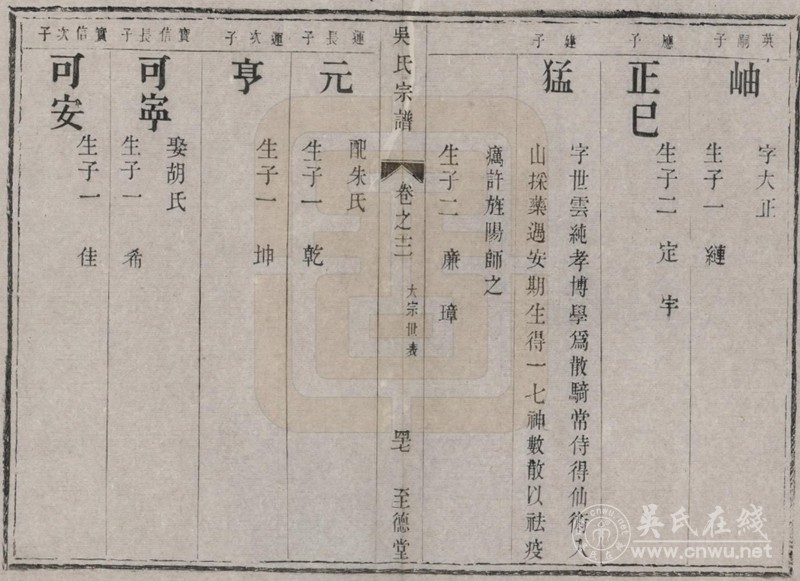 英嗣子
岫
字大正
生子一 縺
應子
正巳
生子二 定 宇
建子
猛
字世雲純孝博學爲散騎常侍得仙術入
山採藥遇安期生得一七神數散以祛疫
癘許旌陽師之
生子二 廉 璋
吳氏宗譜
卷之十二
大宗世表
至德堂
運長子
元
配朱氏
生子一 乾
運次子
亨
生子一 坤
實信長子
可寧
娶胡氏
生子一 希
實信次子
可安
生子一 佳
吴氏在线
www.cnwu.net